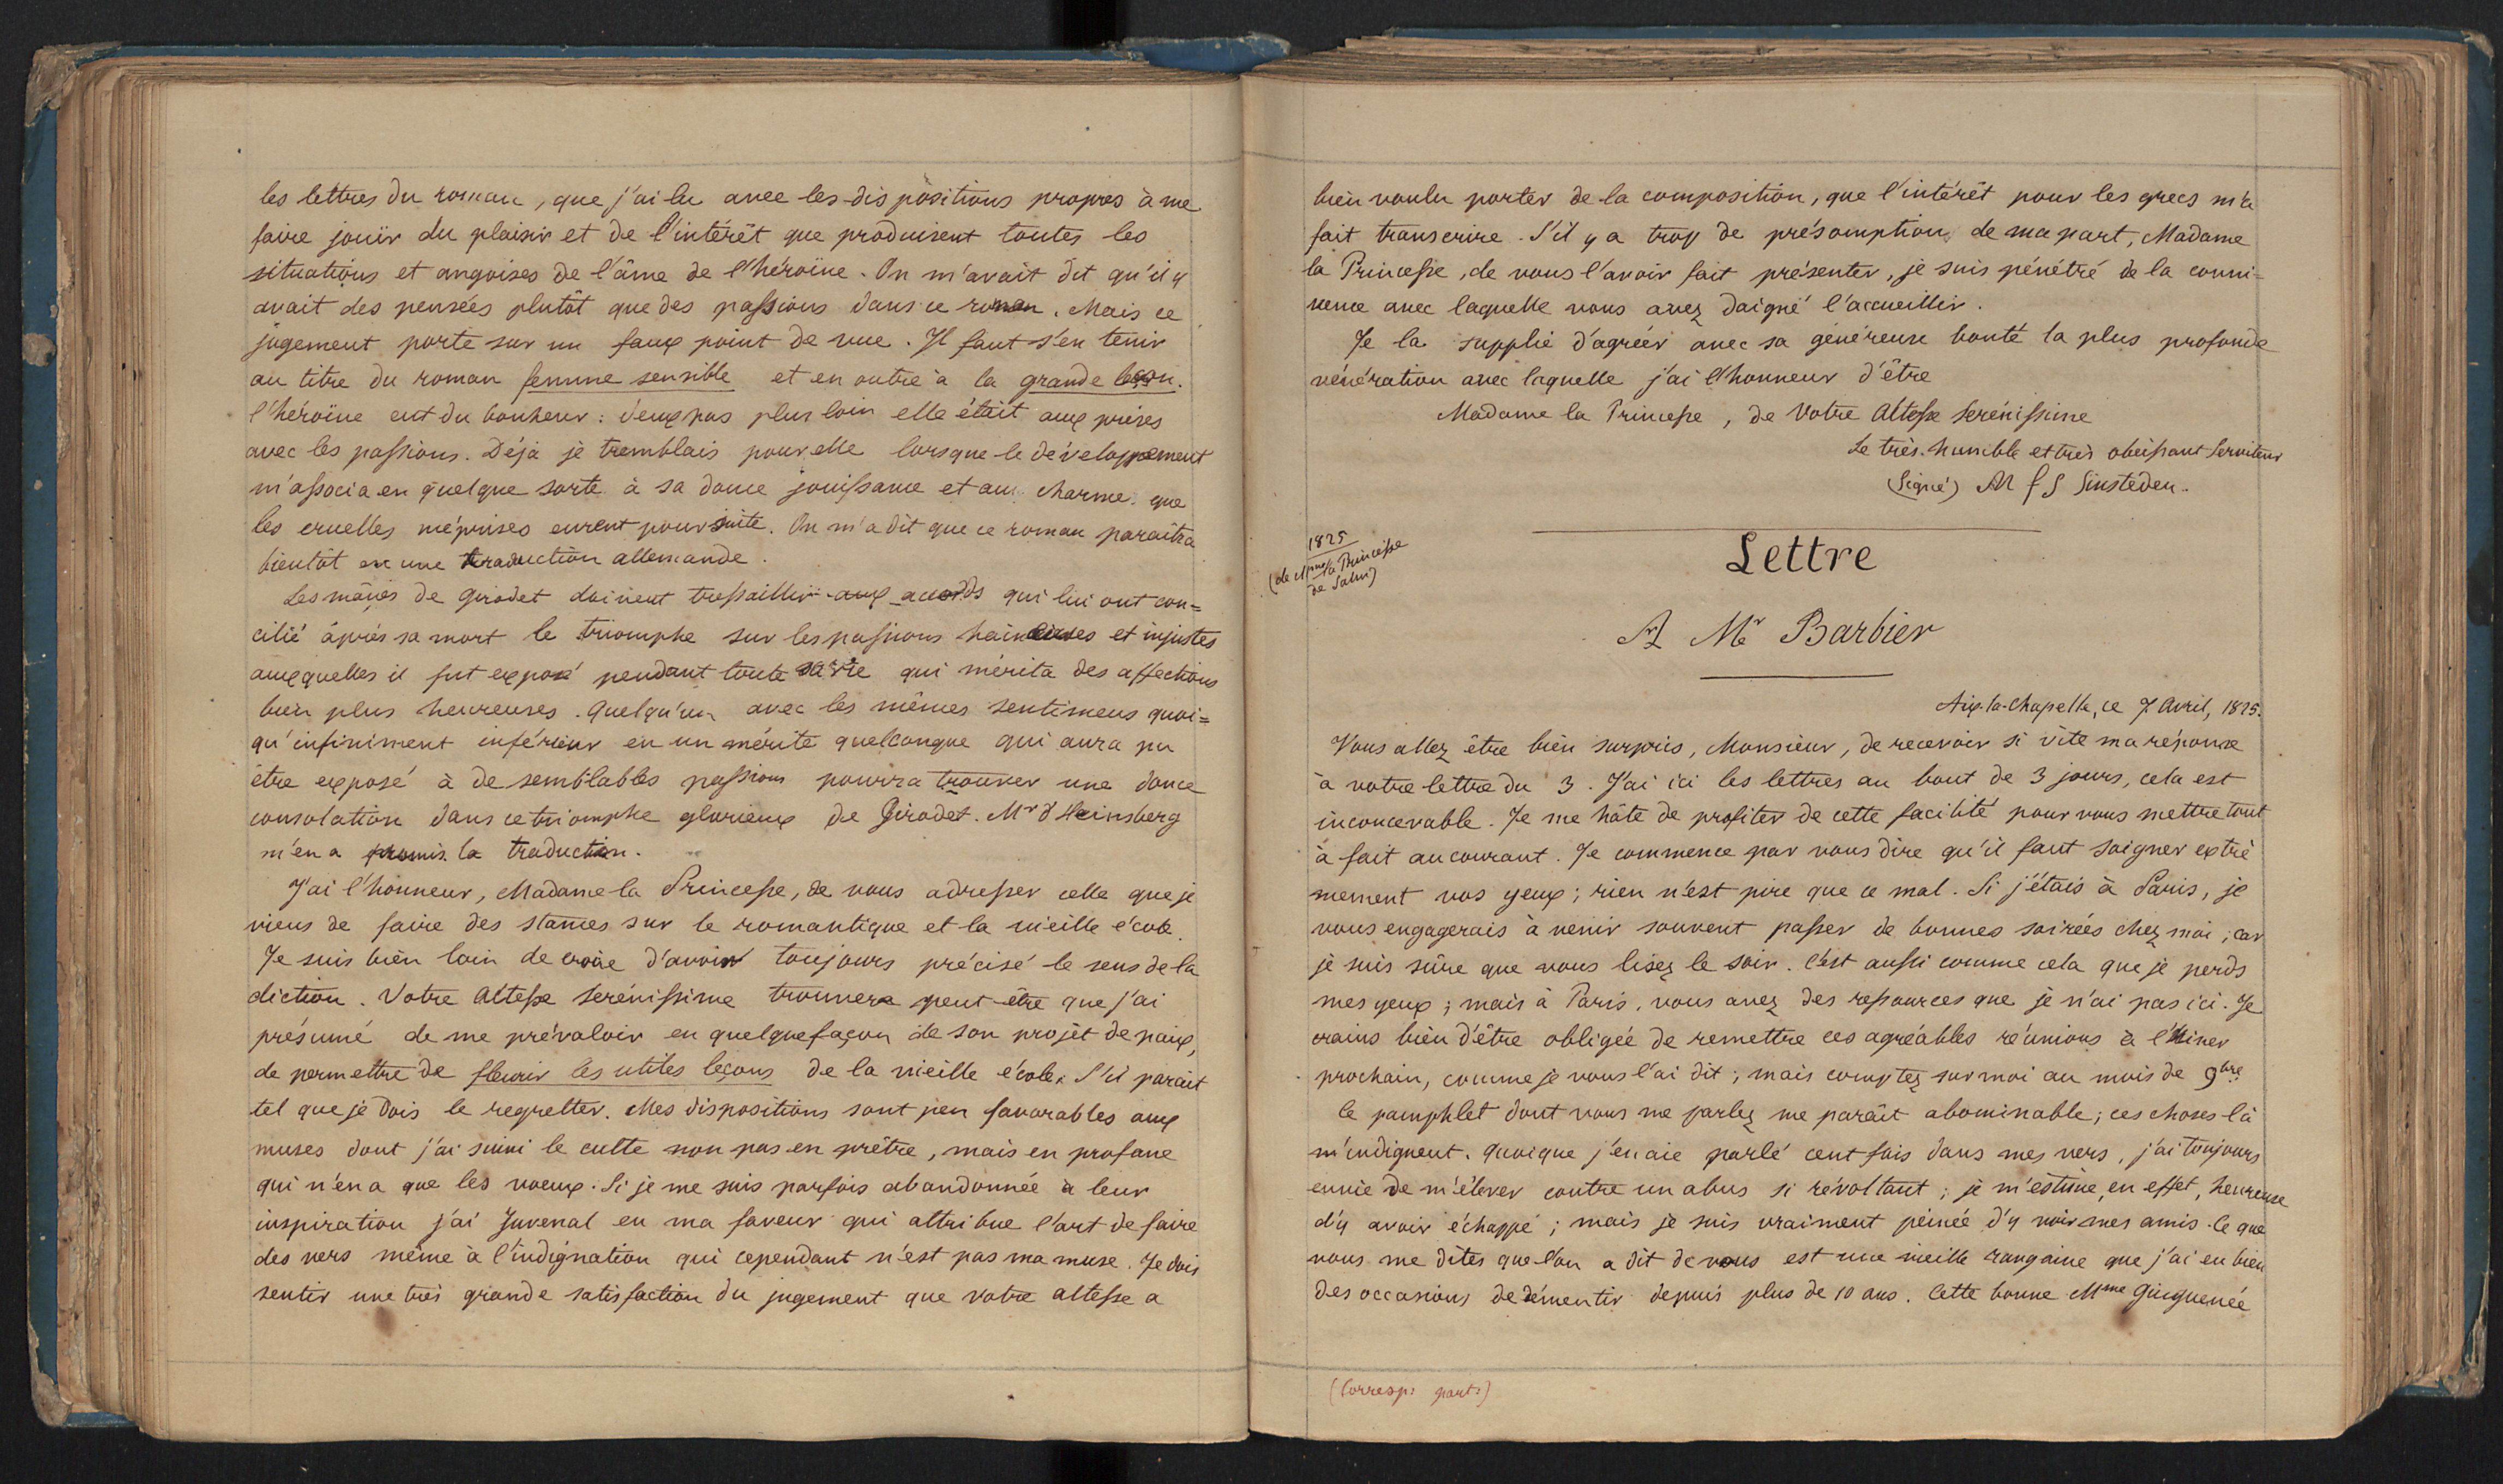 les lettres du roman, que j'ai lu avec les dispositions propres à me
faire jouir du plaisir et de l'intérêt que produisent toutes les
situations et angoises de l'âme de l'héroïne. On m'avait dit qu'il y
avait des pensées plutôt que des passions dans ce roman. Mais ce
jugement porte sur un faux point de vue. Il faut s'en tenir
au titre du roman femme sensible et en outre à la grande leçon.
l'héroïne eut du bonheur : deux pas plus loin elle était aux prises
avec les passions. Déjà je tremblais pour elle lorsque le développement
m'associa en quelque sorte à sa douce jouissance et au charme que
les cruelles méprises eurent pour suite. On m'a dit que ce roman paraîtra
bientôt en une traduction allemande.
Les mânes de Girodet doivent tressaillir aux accords qui lui ont con=
cilié après sa mort le triomphe sur les passions haineuses et injustes
auxquelles il fut exposé pendant toute sa vie qui mérita des affections
bien plus heureuses. Quelqu'un avec les mêmes sentimens quoi=
qu'infiniment inférieur en un mérite quelconque qui aura pu
être exposé à de semblables passions pourra trouver une douce
consolation dans ce triomphe glorieux de Girodet. Mr d'Heinsberg
m'en a promis la traduction.
J'ai l'honneur, Madame la Princesse, de vous adresser celle que je
viens de faire des stances sur le romantique et la vieille école.
Je suis bien loin de croire d'avoir toujours précisé le sens de la
diction. Votre Altesse Serénissime trouvera peut-être que j'ai
présumé de me prévaloir en quelque façon de son projet de paix,
de permettre de fleurir les utiles leçons de la vieille école. S'il parait
tel que je dois le regretter. Mes dispositions sont peu favorables aux
muses dont j'ai suivi le culte non pas en prêtre, mais en profane
qui n'en a que les voeux. Si je me suis parfois abandonnée à leur
inspiration j'ai Juvenal en ma faveur qui attribue l'art de faire
des vers même à l'indignation qui cependant n'est pas ma muse. Je dois
sentir une très grande satisfaction du jugement que votre altesse a
bien voulu porter de la composition, que l'intérêt pour les grecs m'a
fait transcrire. S'il y a trop de présomption de ma part, Madame
la Princesse, de vous l'avoir fait présenter, je suis pénétré de la conni=
vence avec laquelle vous avez daigné l'accueillir.
Je la supplie d'agréer avec sa généreuse bonté la plus profonde
vénération avec laquelle j'ai l'honneur d'être
Madame la Princesse, de Votre Altesse Serénissime
Le très-humble et très obéissant Serviteur
(Signé) M f S Sinsteden.
1825
(de Mme la Princesse
de Salm)
Lettre
A Mr Barbier
Aix-la-Chapelle, ce 7 Avril, 1825.
Vous allez être bien surpris, Monsieur, de recevoir si vite ma réponse
à votre lettre du 3. J'ai ici les lettres au bout de 3 jours, cela est
inconcevable. Je me hâte de profiter de cette facilité pour vous mettre tout
à fait au courant. Je commence par vous dire qu'il faut soigner extrê
mement vos yeux ; rien n'est pire que ce mal. Si j'étais à Paris, je
vous engagerais à venir souvent passer de bonnes soirées chez moi ; car
je suis sûre que vous lisez le soir. C'est aussi comme cela que je perds
mes yeux ; mais à Paris, vous avez des ressources que je n'ai pas ici. Je
crains bien d'être obligée de remettre ces agréables réunions à l'hiver
prochain, comme je vous l'ai dit ; mais comptez sur moi au mois de 9bre
Ce pamphlet dont vous me parlez me parâit abominable ; ces choses-là
m'indignent. Quoique j'en aie parlé cent fois dans mes vers, j'ai toujours
envie de m'élever contre un abus si révoltant ; je m'estime, en effet, heureuse
d'y avoir échappé ; mais je suis vraiment peinée d'y voir mes amis. Ce que
vous me dites que l'on a dit de vous est une vieille rangaine que j'ai eu bien
des occasions de démentir depuis plus de 10 ans. Cette bonne Mme Guiguenée
(Corresp: part:)